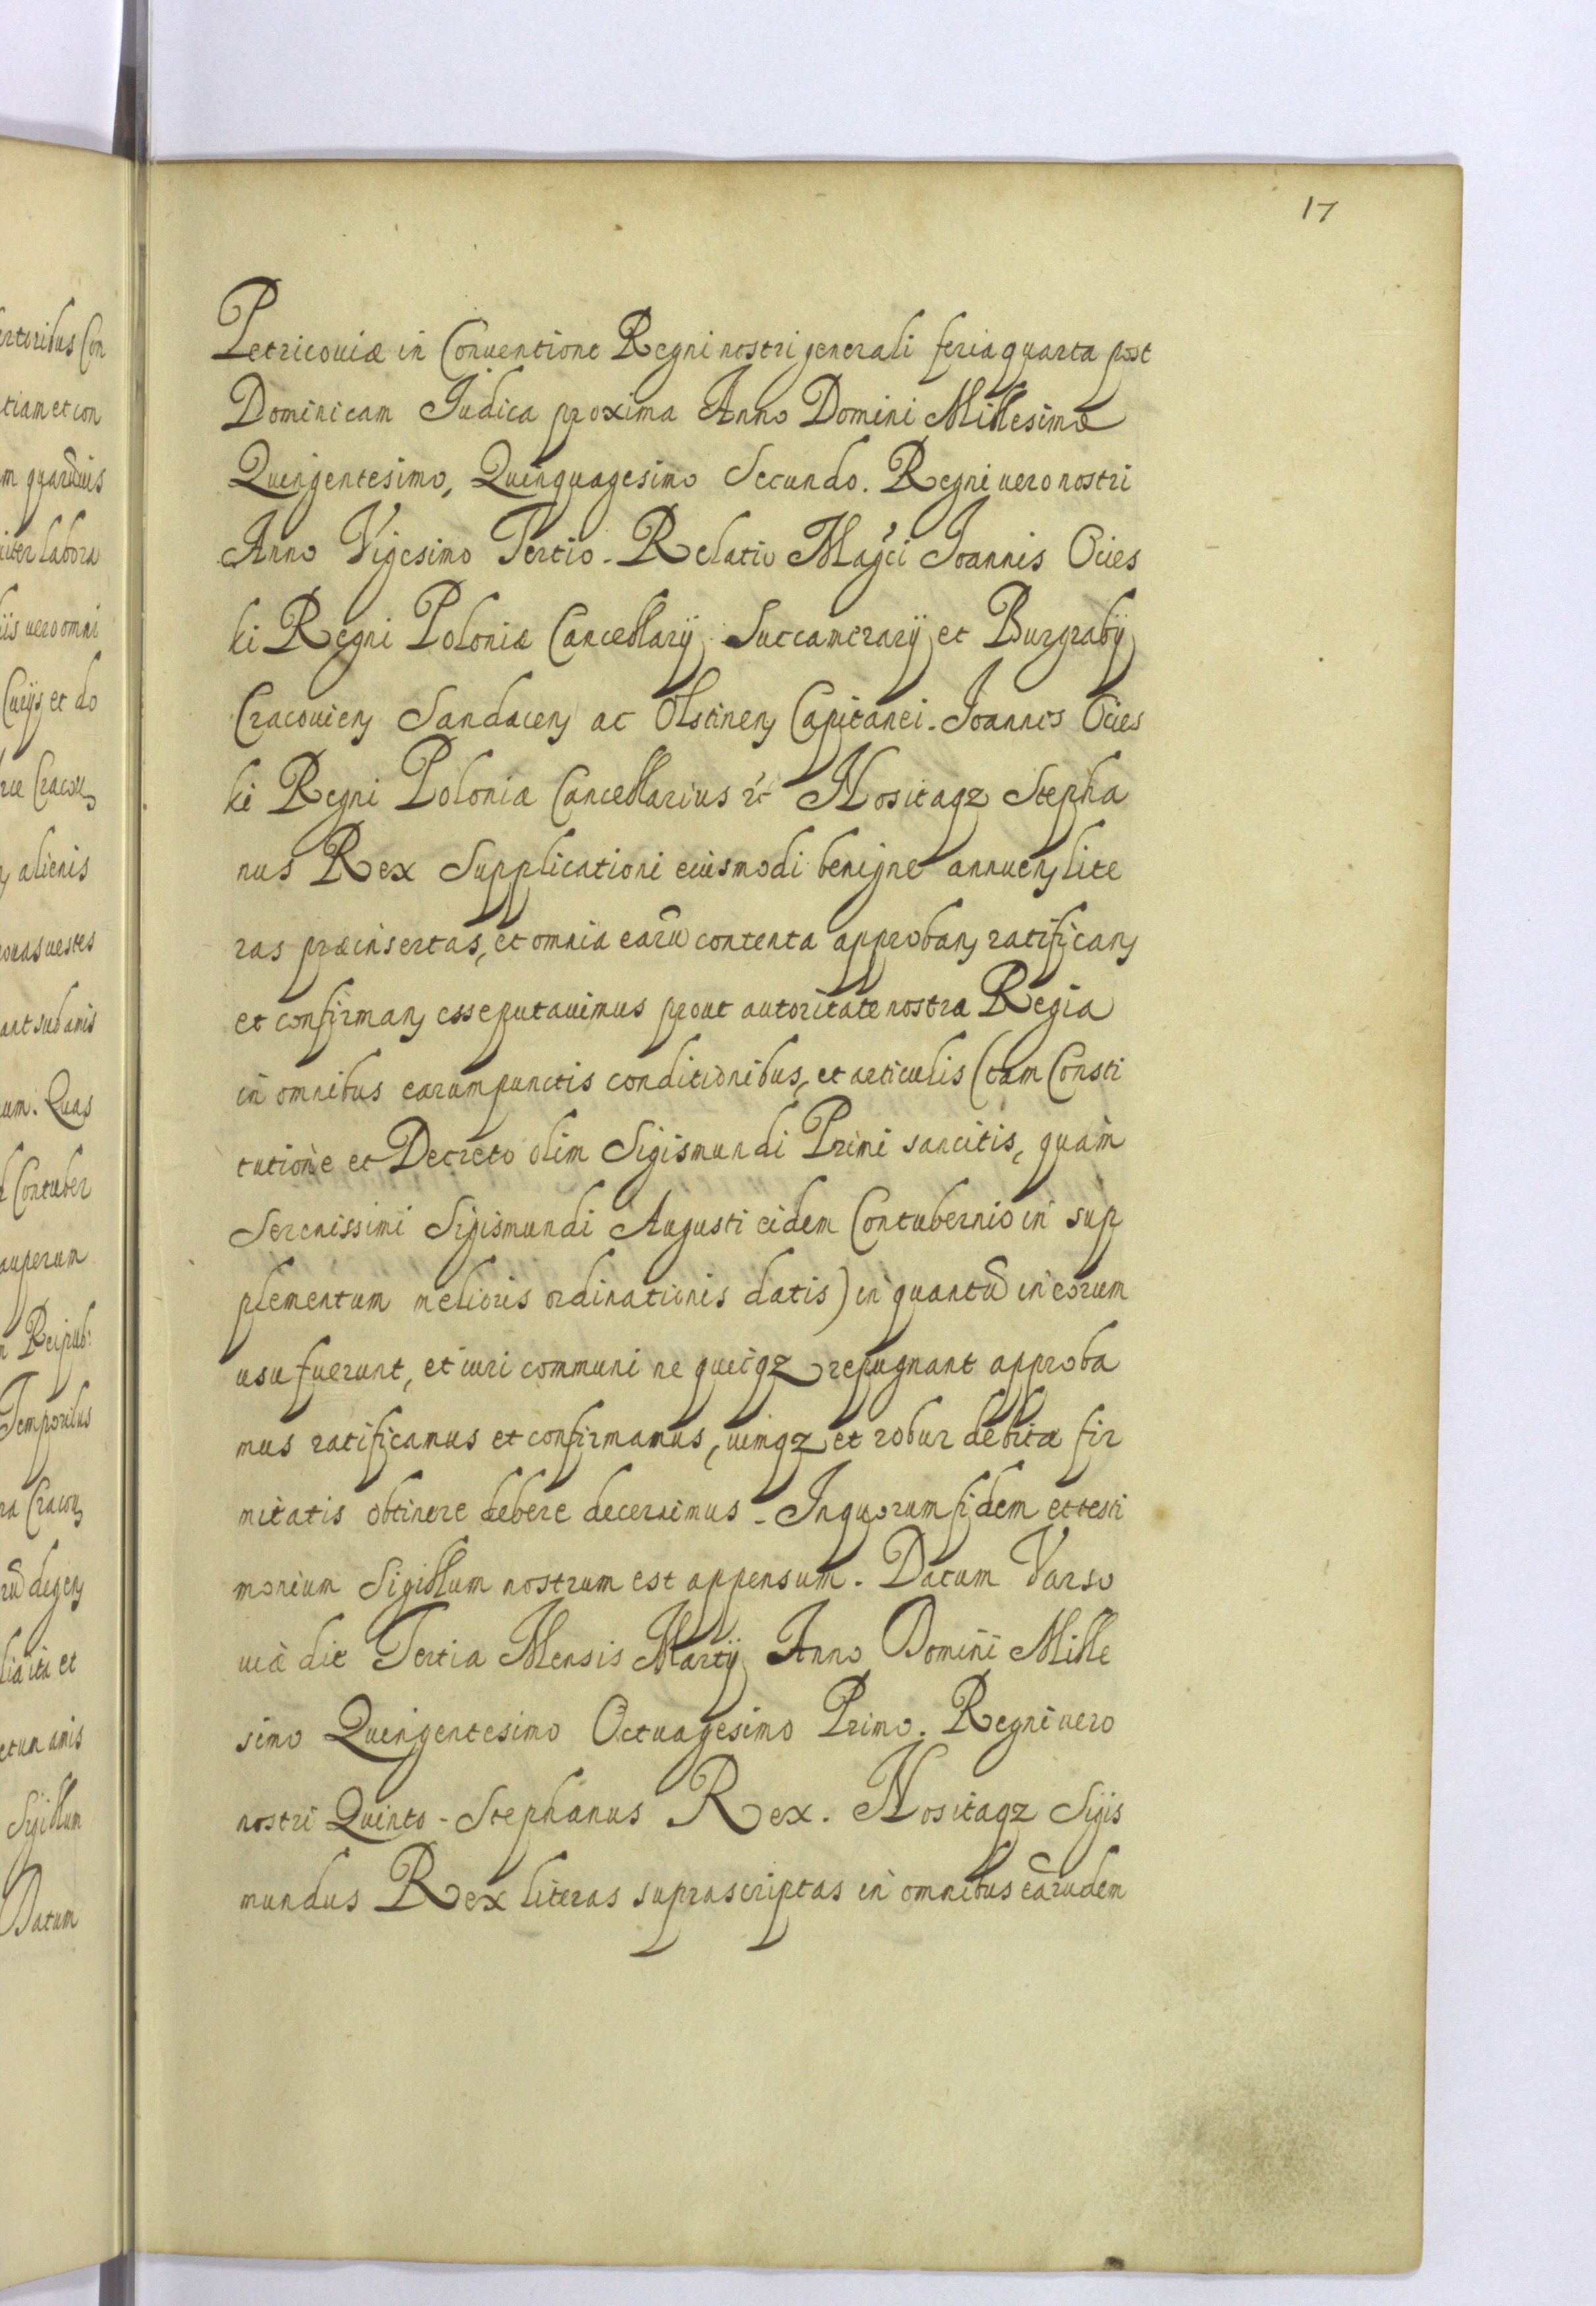 17
Petricouiæ in Conuentione Regni nostri generali feria quarta post
Dominicam Judica proxima Anno Domini Millesimo
Quingentesimo, Quinquagesimo Secundo. Regni uero nostri
Anno Vigesimo Tertio. Relatio Mag̃ci Joannis Ocies
ki Regni Poloniæ Cancellarij Succamerarij et Burgrabij
Cracouien̨ Sandacen̨ ac Olstinen̨ Capitanei. Joannes Ocies
ki Regni Polonia Cancellarius &c Nositaqz Stepha
nus Rex Supplicationi eiusmodi benigne annuen̨ lite
ras præinsertas, et omnia earũ contenta approban̨ ratifican̨
et confirman̨ esse putauimus prout autoritate nostra Regia
in omnibus earum punctis conditionibus, et articulis (tam Consti
tutione et Decreto olim Sigismundi Primi sancitis, quàm
Serenissimi Sigismundi Augusti eidem Contubernio in sup
plementum melioris ordinationis datis) in quantũ in eorum
usu fuerunt, et iuri communi ne queiqz repugnant approba
mus ratificamus et confirmamus, uimqz et robur debitæ fir
mitatis obtinere debere decernimus. In quorum fidem et testi
monium Sigillum nostrum est appensum. Datum Varso
uiæ die Tertia Mensis Martij Anno Domini Mille
simo Quingentesimo Octuagesimo Primo. Regni uero
nostri Quinto. Stephanus Rex. Nositaqz Sigis
mundus Rex literas suprascriptas in omnibus earũdem
rtoribus Con
tiam et con
iter labora
iis uero omni
Curijs et do
alienis
ouas uestes
um. Quas
Contuber
auperum
Reipub:
Temporibus
licita et
Sigillum
Datum